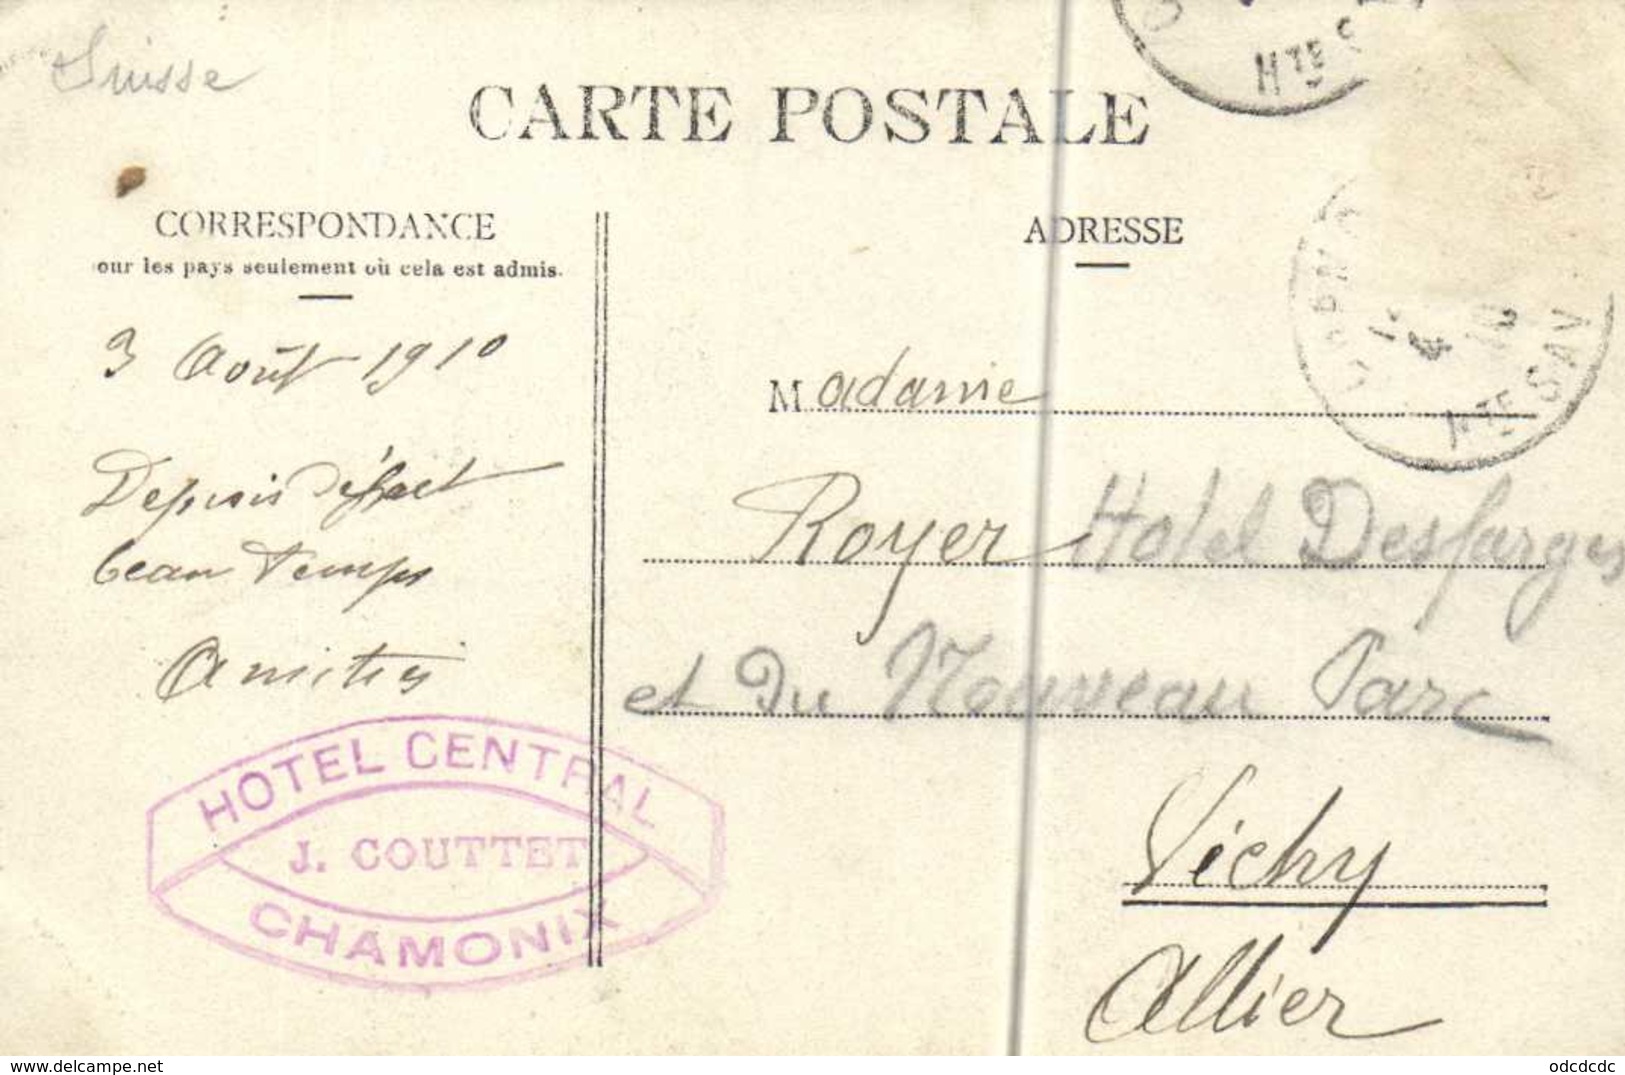 Suisse
CARTE POSTALE
HTE S
CORRESPONDANCE
our les pays seulement où cela est admis.
3 Août 1910
Depuis départ
beau temps
Amitiés
HOTEL CENTRAL
J. COUTTET
CHAMONIX
ADRESSE
4
10
HTE SAV
Madame
Royer Hotel Desfarges
et Du Nouveau Parc
Vichy
Allier
www.delcampe.net
odcdcdc